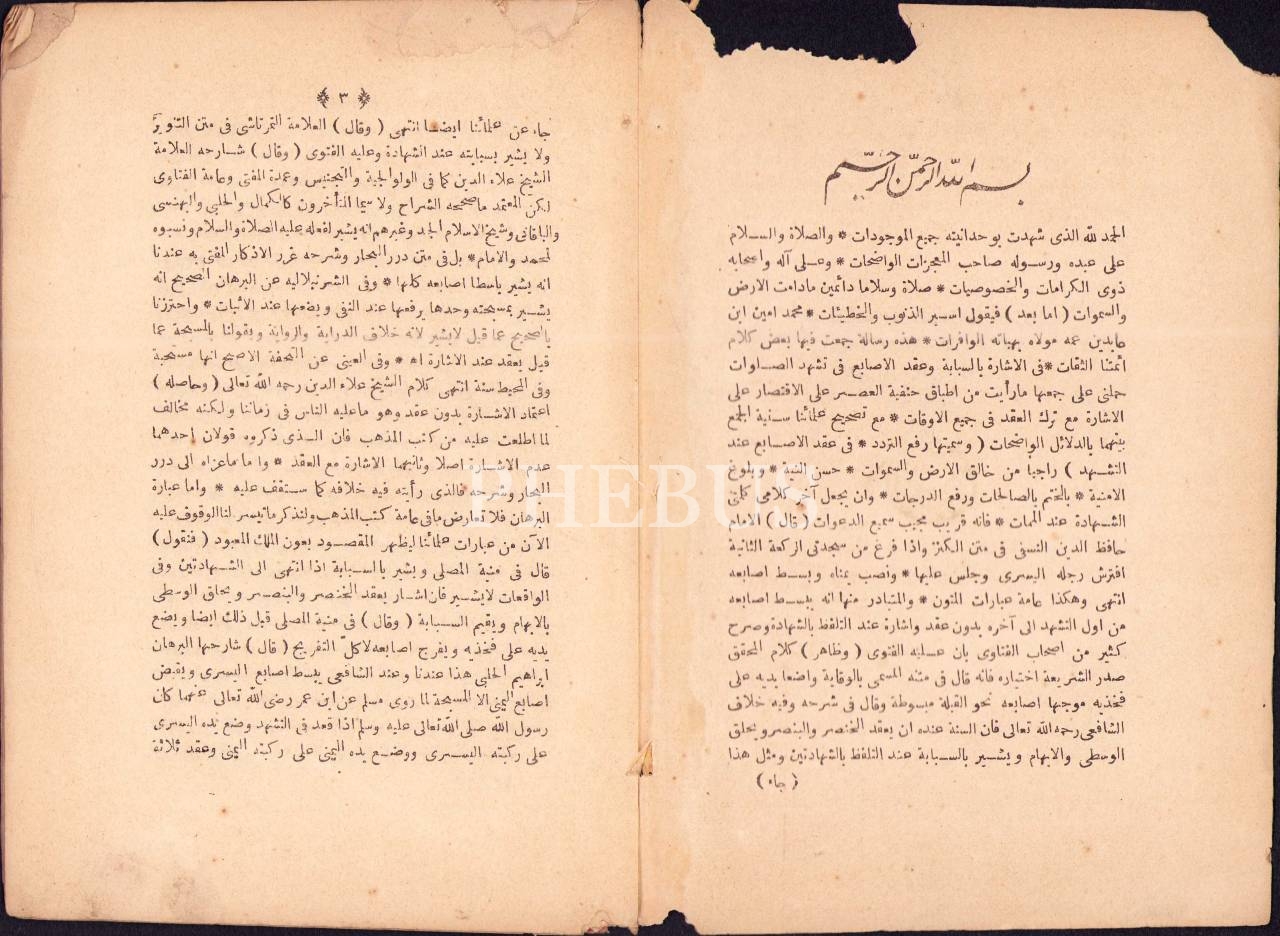 بسم الله الرحمن الرحيم
الحمد لله الذى شهدت بوحدانيته جميع الموجودات * والصلاة والسلام
على عبده ورسوله صاحب المعجزات الواضحات * وعلى آله واصحابه
ذوى الكرامات والخصوصيات * صلاة وسلاما دائمين مادامت الارض
والسموات ( اما بعد ) فيقول اسير الذنوب والخطيئات * محمد امين ابن
عابدين عمه مولاه بهباته الوافرات * هذه رسالة جمعت فيها بعض كلام
أئمتنا الثقات * فى الاشارة بالسبابة وعقد الاصابع فى تشهد الصلوات
حملنى على جمعها مارأيت من اطباق حنفية العصر على الاقتصار على
الاشارة مع ترك العقد فى جميع الاوقات * مع تصحيح علمائنا سنية الجمع
بينهما بالدلائل الواضحات ( وسميتها رفع التردد * فى عقد الاصابع عند
التشهد ) راجيا من خالق الارض والسموات * حسن النية * وبلوغ
الامنية * بالختم بالصالحات ورفع الدرجات * وان يجعل آخر كلامى كلتى
الشهادة عند الممات * فانه قريب مجيب سميع الدعوات ( قال ) الامام
حافظ الدين النسفى فى متن الكنز واذا فرغ من سجدتى الركعة الثانية
افترش رجله اليسرى وجلس عليها * ونصب يمناه وبسط اصابعه
انتهى وهكذا عامة عبارات المتون * والمتبادر منها انه يبسط اصابعه
من اول التشهد الى آخره بدون عقد واشارة عند التلفظ بالشهادة وصرح
كثير من اصحاب الفتاوى بان عليه الفتوى ( وظاهر ) كلام المحقق
صدر الشريعة اختياره فانه قال فى متنه المسمى بالوقاية واضعا يديه على
فخذيه موجها اصابعه نحو القبلة مبسوطة وقال فى شرحه وفيه خلاف
الشافعى رحمه الله تعالى فان السنة عنده ان يعقد الخنصر والبنصر ويحلق
الوسطى والابهام ويشير بالسبابة عند التلفظ بالشهادتين ومثل هذا
( جاء )
٣
جاء عن علمائنا ايضا انتهى ( وقال ) العلامة التمرتاشى فى متن التنوير
ولا يشير بسبابته عند الشهادة وعليه الفتوى ( وقال ) شارحه العلامة
الشيخ علاء الدين كما فى الولوالجية والتجنيس وعمدة المفتى وعامة الفتاوى
لكن المعتمد ماصححه الشراح ولا سيما المتأخرون كالكمال والحلبى والبهنسى
والباقانى وشيخ الاسلام الجد وغيرهم انه يشير لفعله عليه الصلاة والسلام ونسبوه
لمحمد والامام * بل فى متن درر البحار وشرحه غرر الاذكار المفتى به عندنا
انه يشير باسطا اصابعه كلها * وفى الشرنبلاليه عن البرهان الصحيح انه
يشير بمسبحته وحدها يرفعها عند النفى ويضعها عند الاثبات * واحترزنا
بالصحيح عما قيل لايشير لانه خلاف الدراية والرواية وبقولنا بالمسبحة عما
قيل يعقد عند الاشارة اه * وفى العينى عن التحفة الاصح انها مستحبة
وفى المحيط سنة انتهى كلام الشيخ علاء الدين رحمه الله تعالى ( وحاصله )
اعتماد الاشارة بدون عقد وهو ماعليه الناس فى زماننا ولكنه مخالف
لما اطلعت عليه من كتب المذهب فان الذى ذكروه قولان احدهما
عدم الاشارة اصلا وثانيهما الاشارة مع العقد * واما ماعزاه الى درر
البحار وشرحه فالذى رأيته فيه خلافه كما ستقف عليه * واما عبارة
البرهان فلا تعارض مافى عامة كتب المذهب ولنذكر ماتيسر لنا الوقوف عليه
الآن من عبارات علمائنا ليظهر المقصود بعون الملك المعبود ( فنقول )
قال فى منية المصلى ويشير بالسبابة اذا انتهى الى الشهادتين وفى
الواقعات لايشير فان اشار يعقد الخنصر والبنصر ويحلق الوسطى
بالابهام ويقيم السبابة ( وقال ) فى منية المصلى قبل ذلك ايضا ويضع
يديه على فخذيه ويفرج اصابعه لاكل التفريج ( قال ) شارحها البرهان
ابراهيم الحلبى هذا عندنا وعند الشافعى يبسط اصابع اليسرى ويقبض
اصابع اليمنى الا المسبحة لما روى مسلم عن ابن عمر رضى الله تعالى عنهما كان
رسول الله صلى الله تعالى عليه وسلم اذا قعد فى التشهد وضع يده اليسرى
على ركبته اليسرى ووضع يده اليمنى على ركبته اليمنى وعقد ثلاثة
PHEBUS